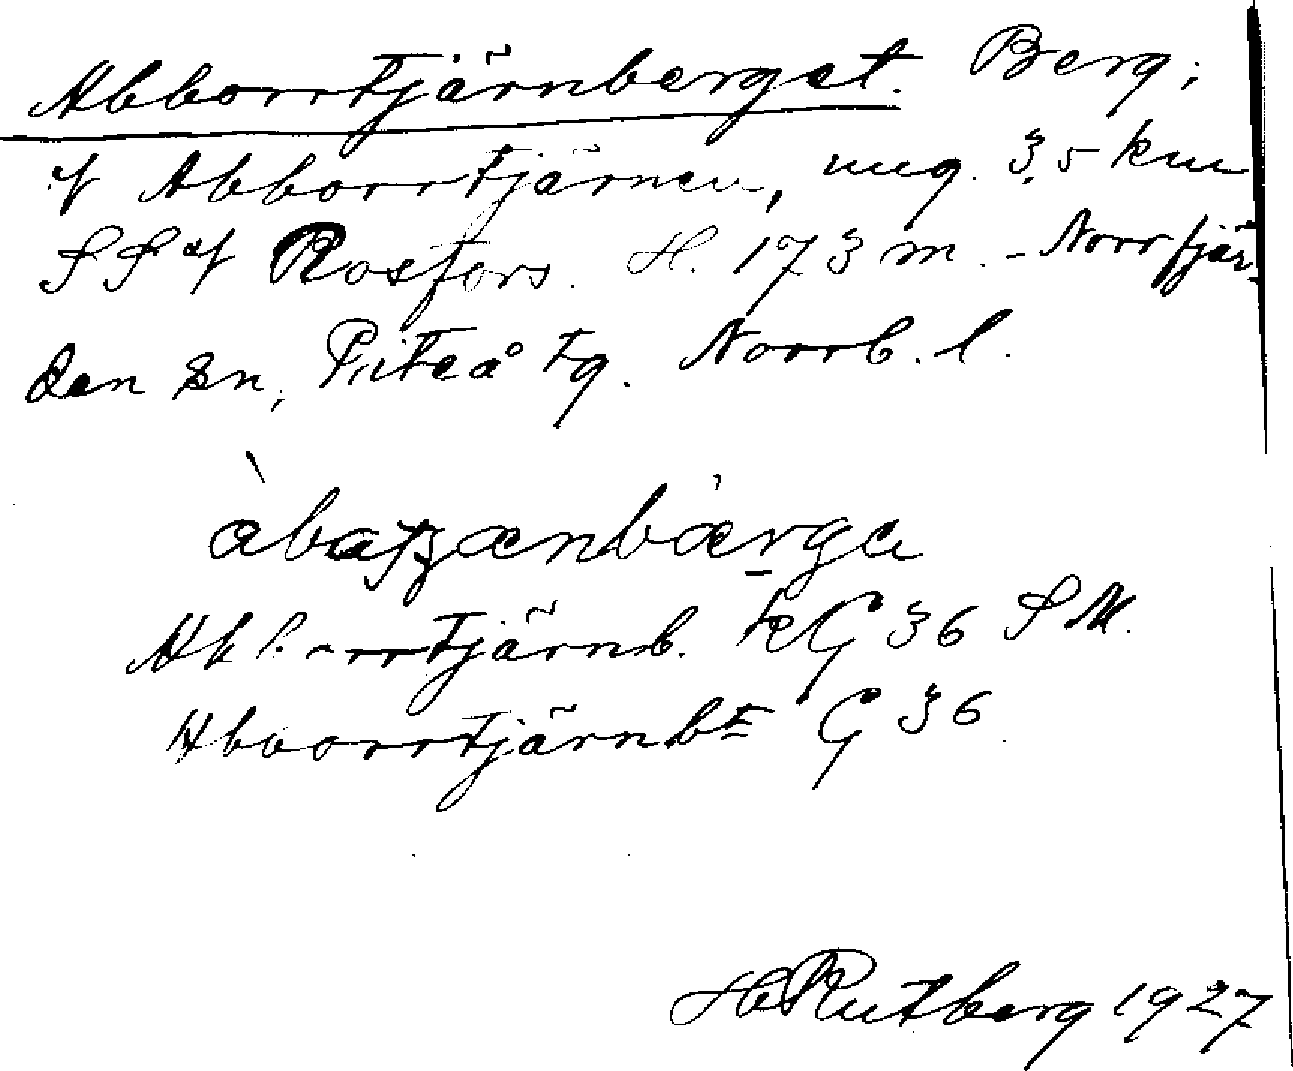 Abborrtjärnberget. Berg;
vf Abborrtjärnen, ung. 3,5 km
SS vf Rosfors. H. 173 m. - Norrfjär-
den sn, Piteå tg. Norrb. l.
Abborrtjärnb. kG 36 SM.
Abborrtjärnbt G 36
H Rutberg 1927